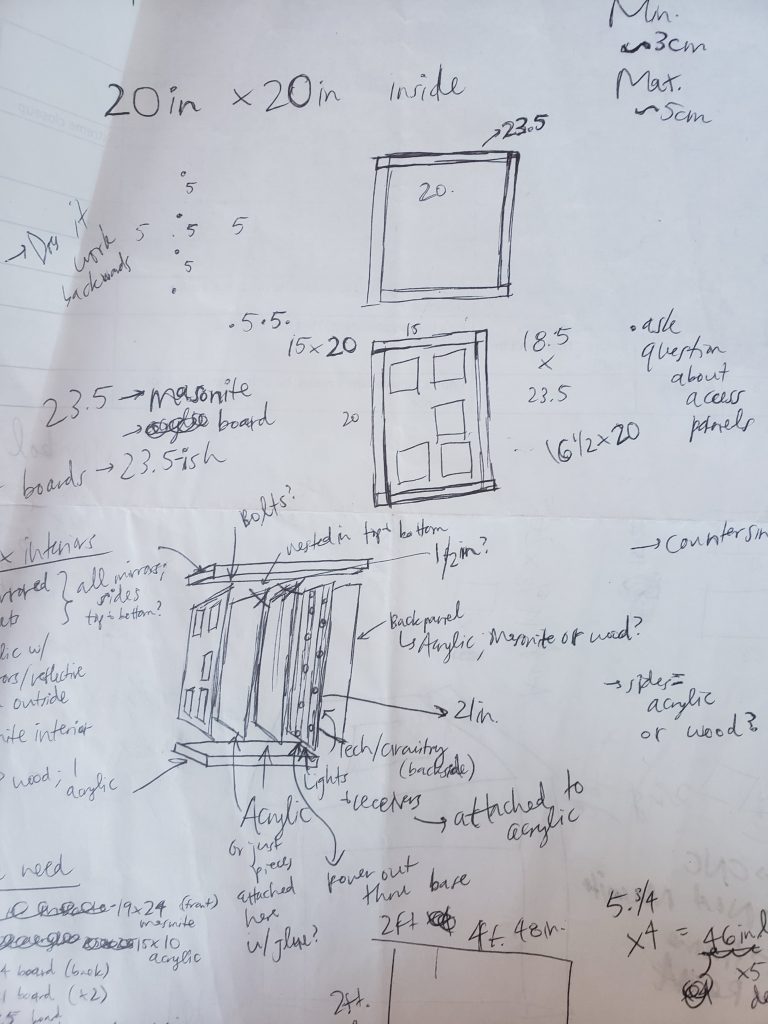 Min.
~3cm
Max.
~5cm
20in x 20in inside
23.5
20.
5
5 .5 5
5
→ Do it
work
backwards
.5.5.
15 x 20
15
20
18.5
x
23.5
16 1/2 x 20
• ask
question
about
access
panels
23.5 → Masonite
→ board
boards → 23.5ish
Bolts?
nested in top & bottom
1 1/2 in?
→ Countersin
x interiors
all mirrors;
sides
top & bottom?
lic w/
ors/reflective
outside
nite interior
wood; 1
acrylic
Back panel
↳ Acrylic, Masonite or wood?
→ sides =
acrylic
or wood?
→ 21in.
tech/circuitry
(backside)
Lights
→ attached to
acrylic
Acrylic
or just
pieces
attached
here
w/ glue?
power out
thru base
need
19x24 (front)
masonite
15x10
acrylic
4 board (back)
1 board (x2)
.5 board
2ft
4ft. 48in.
2ft.
5. 3/4
x4 = 46in
x5